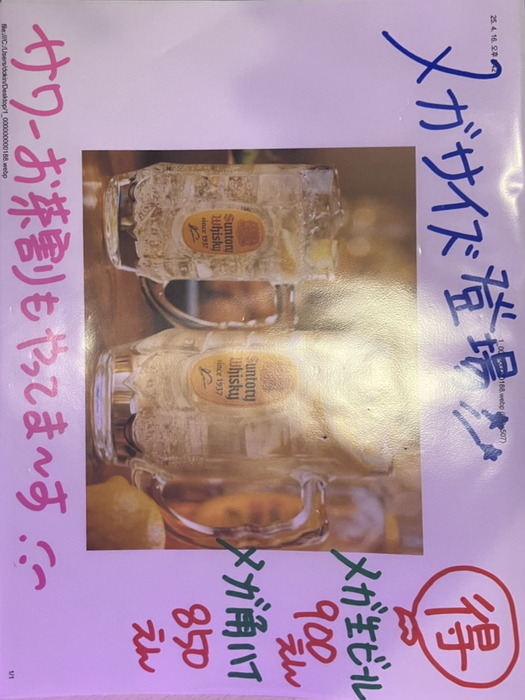 25. 4. 16. 오후
メガサイズ登場!!
1_000000000188.webp
得
メガ生ビル
900
えん
メガ角ハイ
850
えん
Suntory
Whisky
since 1937
Suntory
Whisky
since 1937
サワーお茶割りもやってま〜す
file:///C:/Users/dokin/Desktop/1_000000000188.webp
1/1